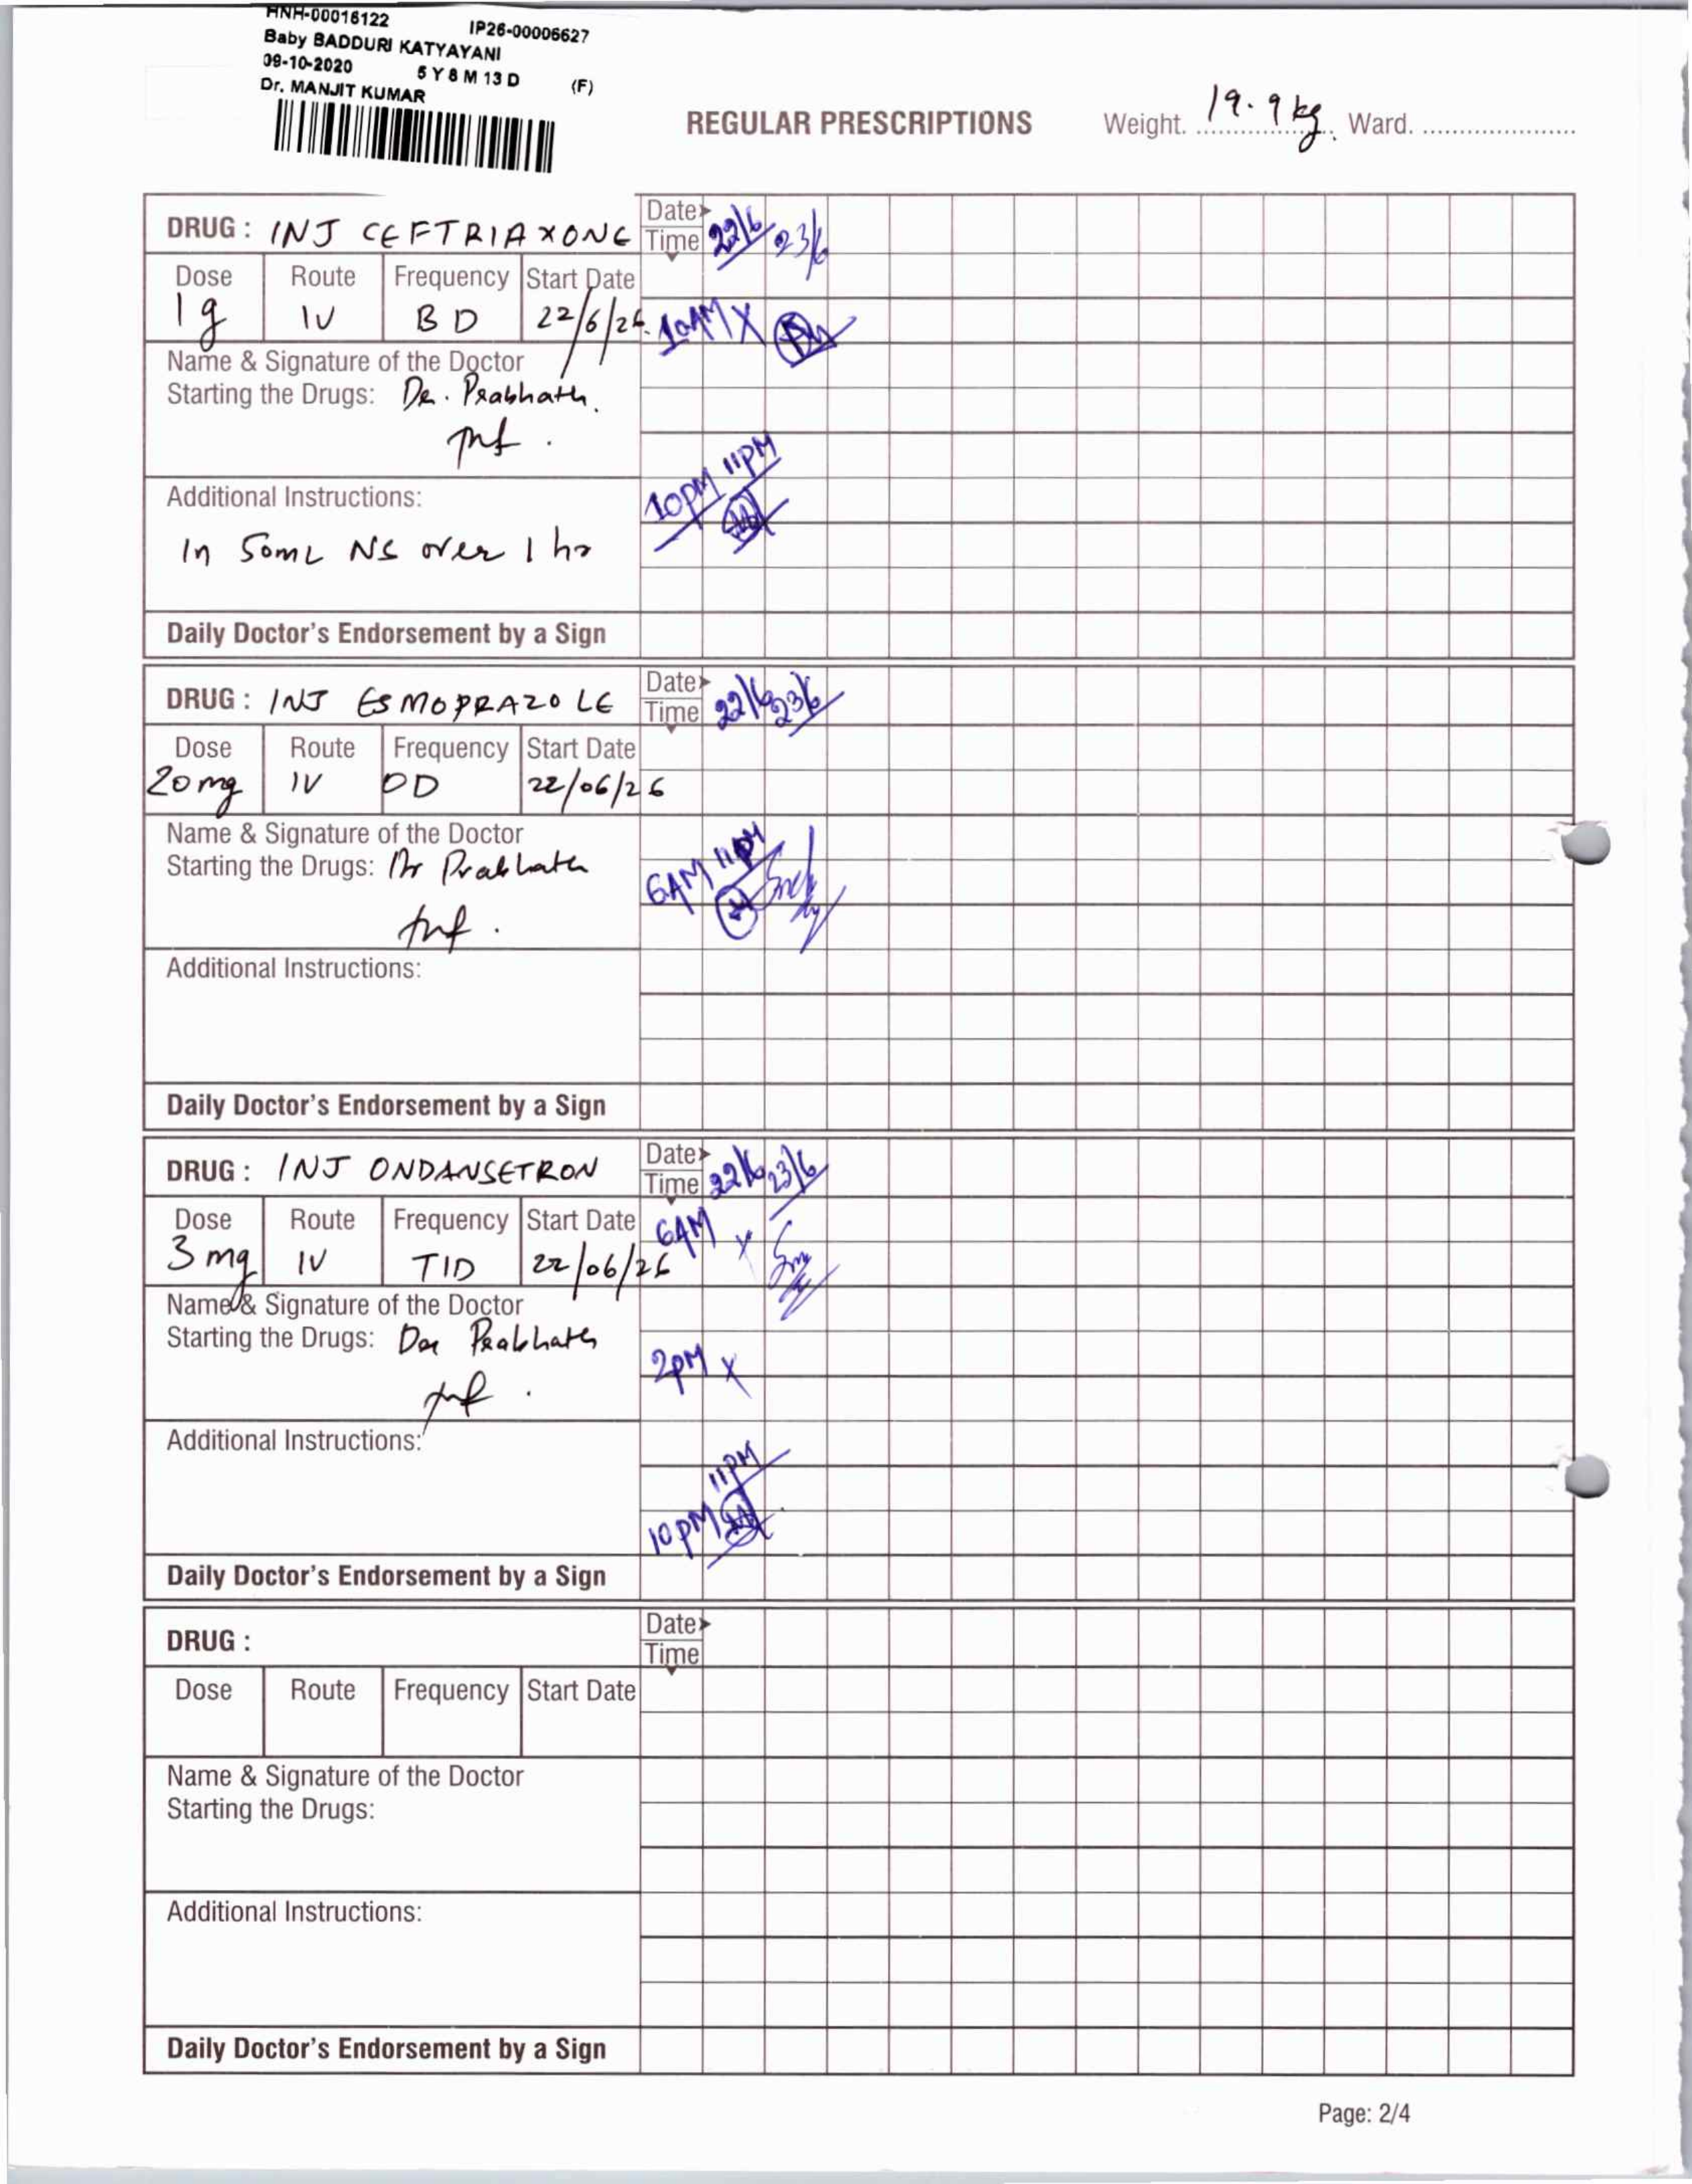 HNH-00016122 IP26-00006627
Baby BADDURI KATYAYANI
09-10-2020 5 Y 8 M 13 D (F)
Dr. MANJIT KUMAR
REGULAR PRESCRIPTIONS Weight. 19.9 kg. Ward.
DRUG : INJ CEFTRIAXONE Date Time 22/6 23/6
Dose Route Frequency Start Date
1g IV BD 22/6/26. 10AM X
Name & Signature of the Doctor
Starting the Drugs: Dr. Prabhath.
Additional Instructions: 10PM 11PM
In 50mL NS over 1 hr
Daily Doctor's Endorsement by a Sign
DRUG : INJ ESMOPRAZOLE Date Time 22/6 23/6
Dose Route Frequency Start Date
20mg IV OD 22/06/26
Name & Signature of the Doctor
Starting the Drugs: Dr Prabhath 6AM 11PM
Additional Instructions:
Daily Doctor's Endorsement by a Sign
DRUG : INJ ONDANSETRON Date Time 22/6 23/6
Dose Route Frequency Start Date 6AM X
3 mg IV TID 22/06/26
Name & Signature of the Doctor
Starting the Drugs: Dr Prabhath 2PM X
Additional Instructions: 11PM
10PM
Daily Doctor's Endorsement by a Sign
DRUG : Date Time
Dose Route Frequency Start Date
Name & Signature of the Doctor
Starting the Drugs:
Additional Instructions:
Daily Doctor's Endorsement by a Sign
Page: 2/4